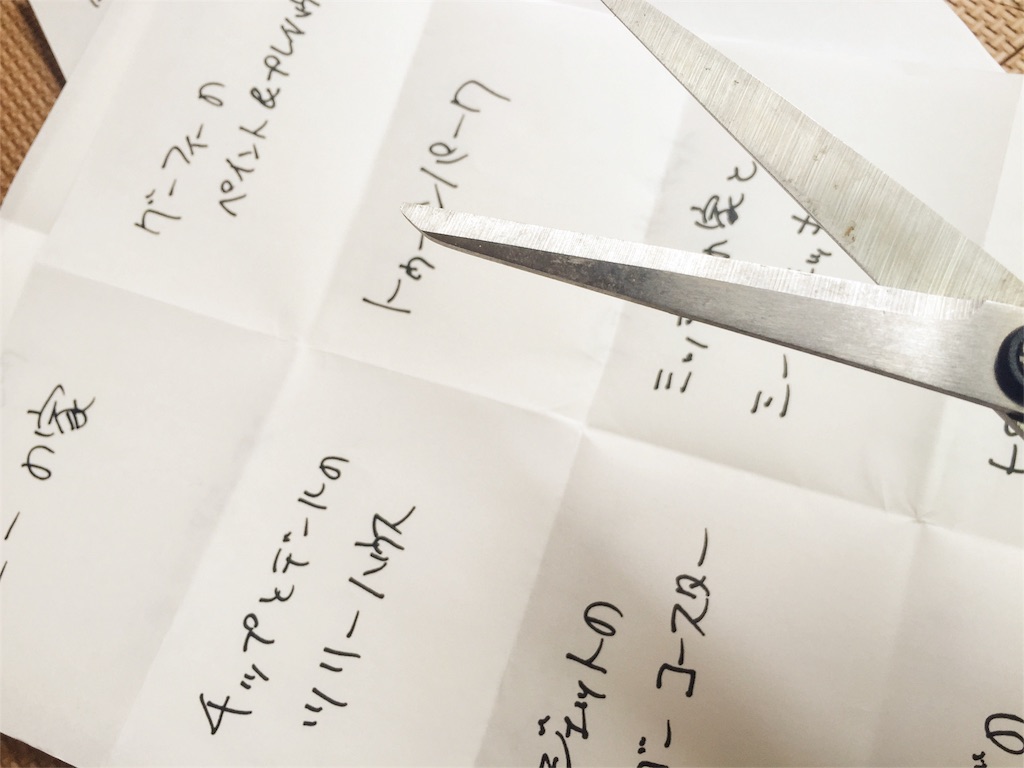 グーフィーの
ペイント&プレイハウ
トゥーンパーク
ミッ の家と
ミー
ーの家
チップとデールの
ツリーハウス
ジェットの
ゴーコースター
の